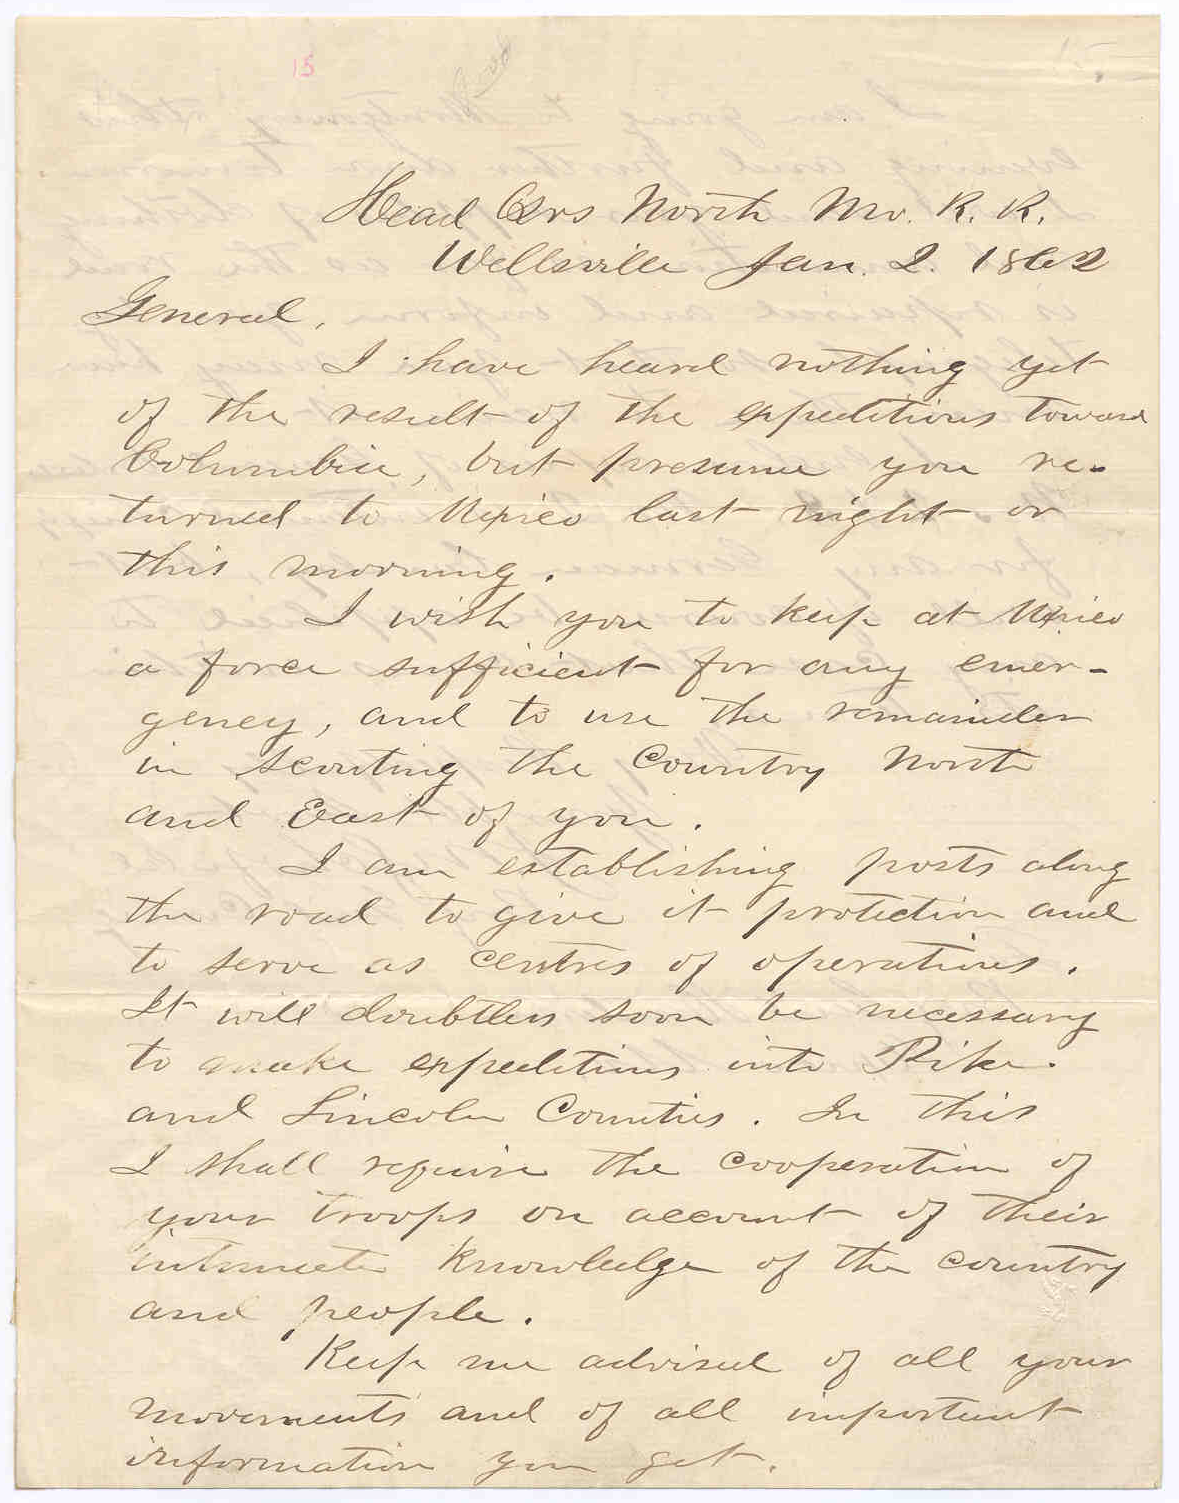 15
Head Qrs North Mo. R. R.
Wellsville Jan. 2. 1862
General,
I have heard nothing yet
of the result of the expeditions toward
Columbia, but presume you re-
turned to Mexico last night or
this morning.
I wish you to keep at Mexico
a force sufficient for any emer-
gency, and to use the remainder
in scouting the Country North
and East of you.
I am establishing posts along
the road to give it protection and
to serve as centres of operations.
It will doubtless soon be necessary
to make expeditions into Pike
and Lincoln Counties. In this
I shall require the cooperation of
your troops on account of their
intimate knowledge of the country
and people.
Keep me advised of all your
movements and of all important
information you get.